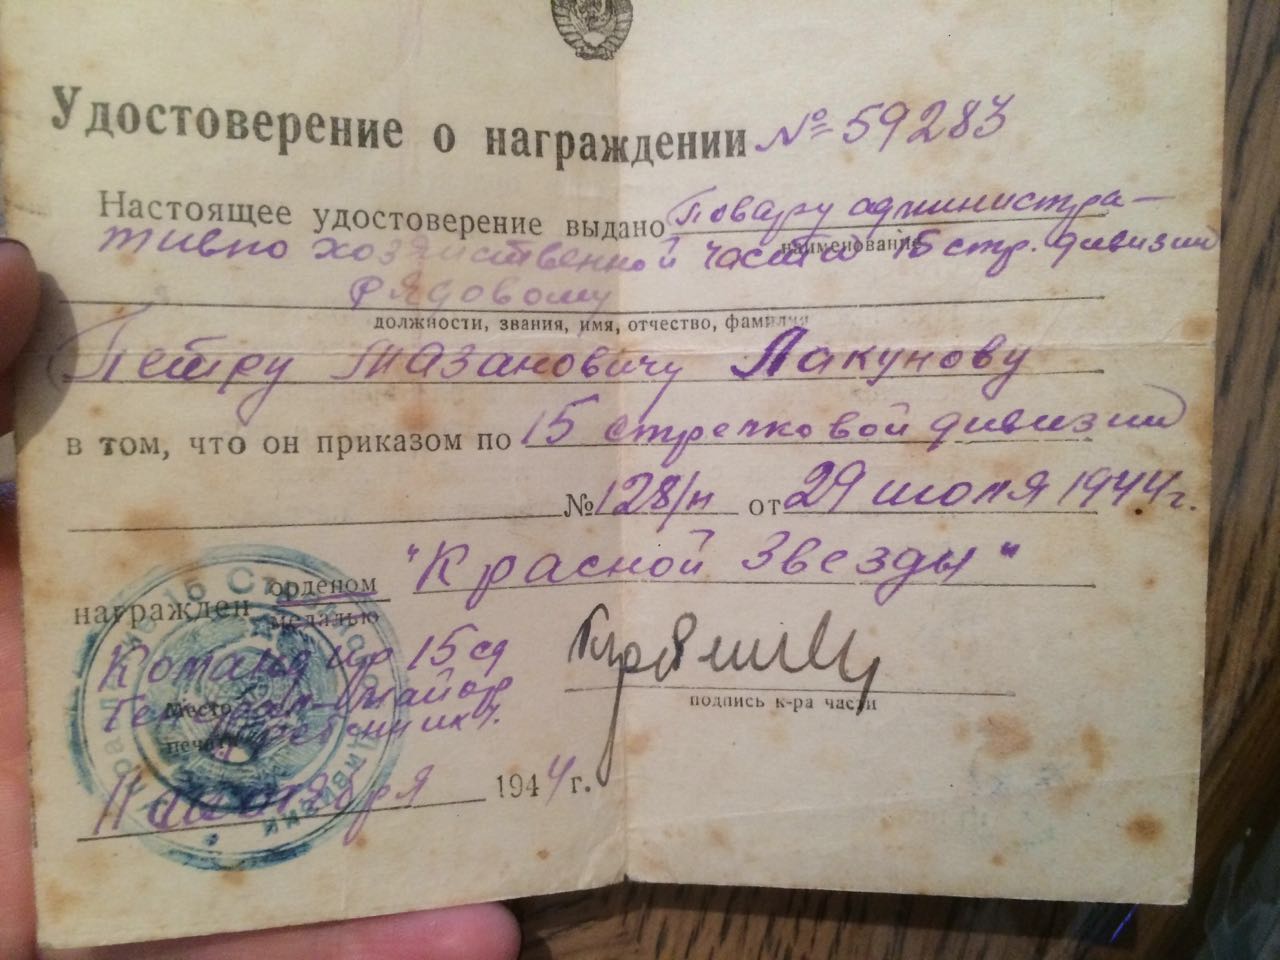 Удостоверение о награждении № 59283
Настоящее удостоверение выдано Повару администра-
наименование
тивно хозяйственной части 15 стр. дивизии
Рядовому
должности, звания, имя, отчество, фамилия
Петру Мазановичу Лакунову
в том, что он приказом по 15 стрелковой дивизии
№ 128/н от 29 июля 1944 г.
награжден орденом "Красной Звезды"
медалью
Командир 15 сд
Генерал-майор
Гребенник К.
Место
печати
подпись к-ра части
октября 1944 г.
15 Стрелковой Дивизии